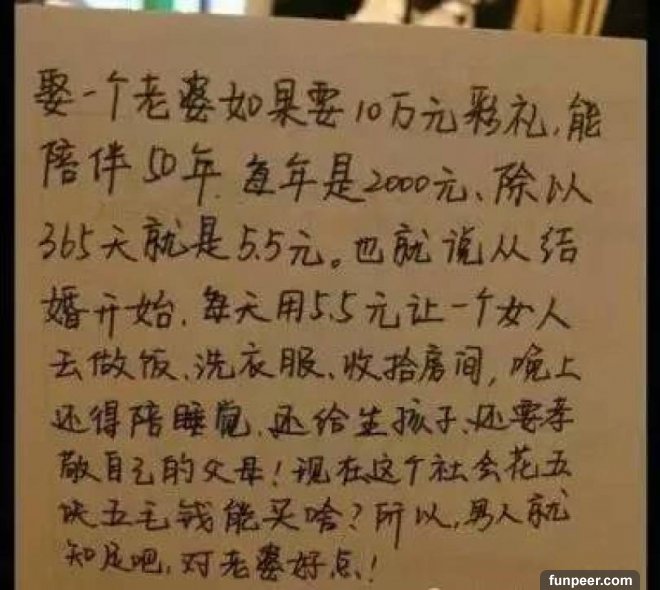 娶一个老婆如果要10万元彩礼,能
陪伴50年.每年是2000元、除以
365天就是5.5元。也就说从结
婚开始.每天用5.5元让一个女人
去做饭、洗衣服、收拾房间,晚上
还得陪睡觉.还给生孩子、还要孝
敬自己的父母!现在这个社会花五
块五毛钱能买啥?所以,男人就
知足吧,对老婆好点!
funpeer.com